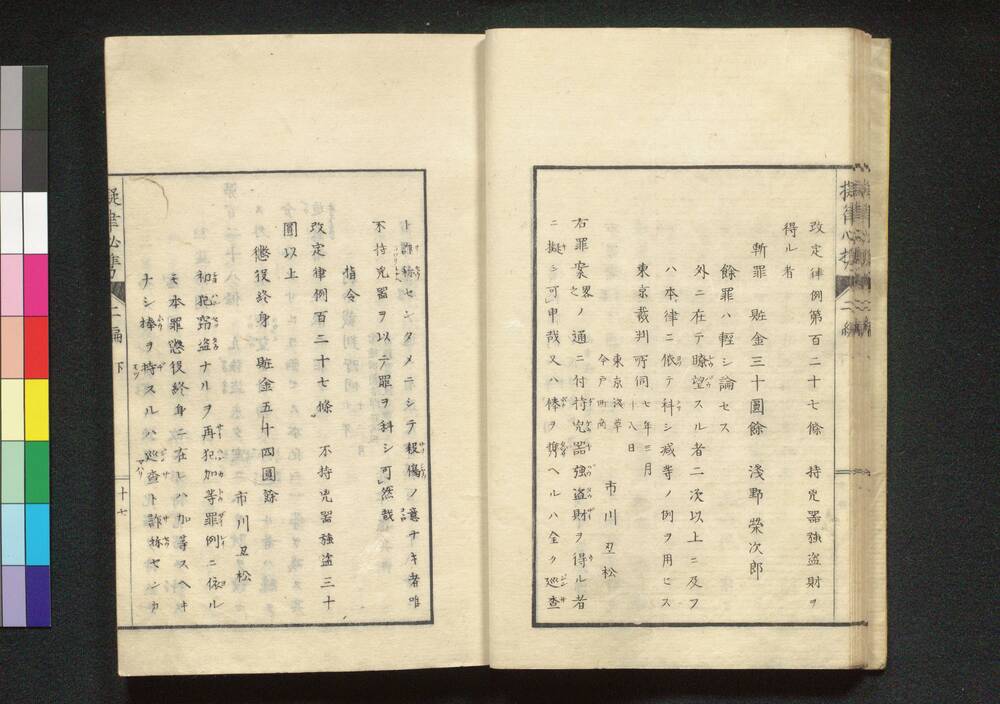 改定律例第百二十七條　持兇器強盜財ヲ
得ル者
斬罪　賍金三十圓餘　淺野榮次郎
餘罪ハ輕シ論セス
外ニ在テ瞭望スル者二次以上ニ及フ
ハ本律ニ依テ科シ減等ノ例ヲ用ヒス
東京裁判所伺七年三月
十八日
東京淺草
今戸町
市川丑松
右罪案畧之ノ通ニ付持兇器強盜財ヲ得ル者
ニ擬シ可申哉又ハ棒ヲ携ヘルハ全ク巡査
ト詐稱センタメニシテ殺傷ノ意ナキ者唯
不持兇器ヲ以テ罪ヲ科シ可然哉
指令
改定律例百二十七條　不持兇器強盜三十
圓以上
懲役終身　賍金五十四圓餘
市川丑松
初犯窃盜ナルヲ再犯加等罪例ニ依ル
モ本罪懲役終身ニ在レハ加等スヘキ
ナシ棒ヲ持スルハ巡査ト詐称センカ
擬律必携　二編
下
十七